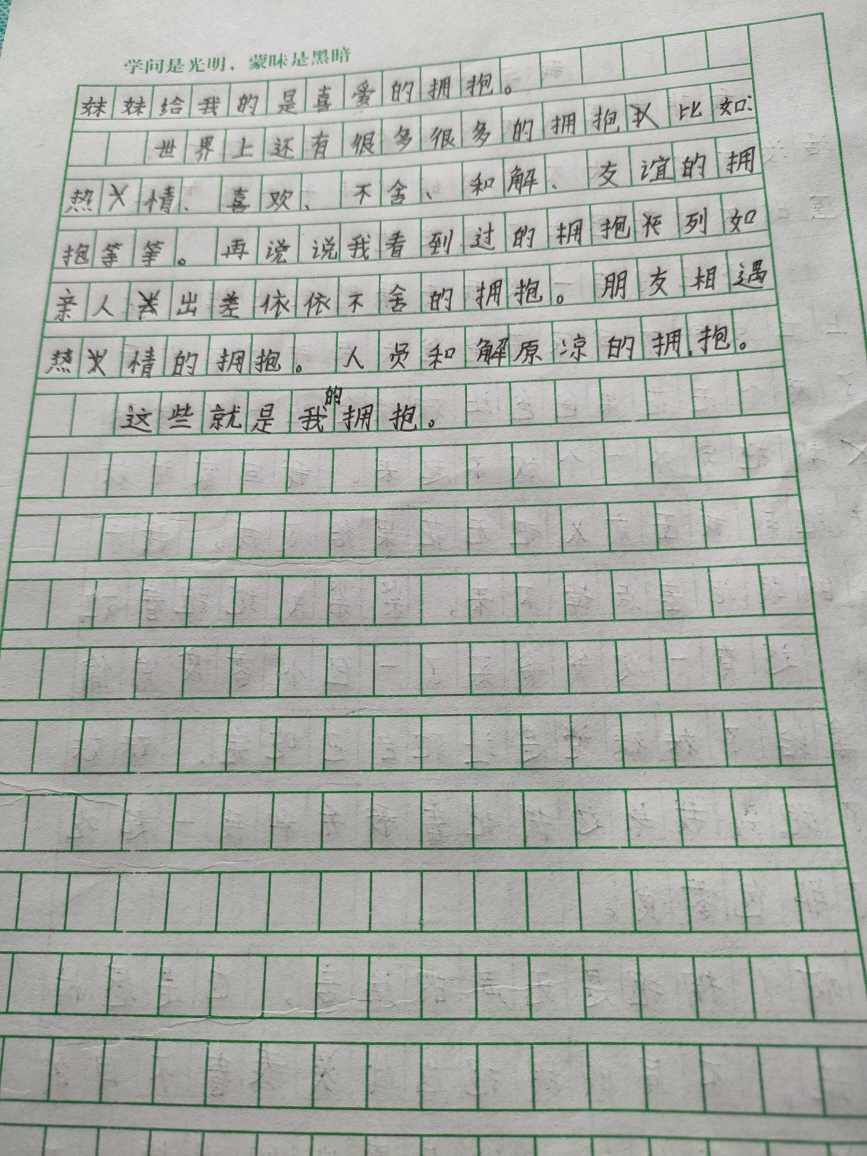 学问是光明，蒙昧是黑暗
妹妹给我的是喜爱的拥抱。
世界上还有很多很多的拥抱比如:
热情、喜欢、不舍、和解、友谊的拥
抱等等。再说说我看到过的拥抱列如
亲人出差依依不舍的拥抱。朋友相遇
热情的拥抱。人员和解原凉的拥抱。
这些就是我的拥抱。